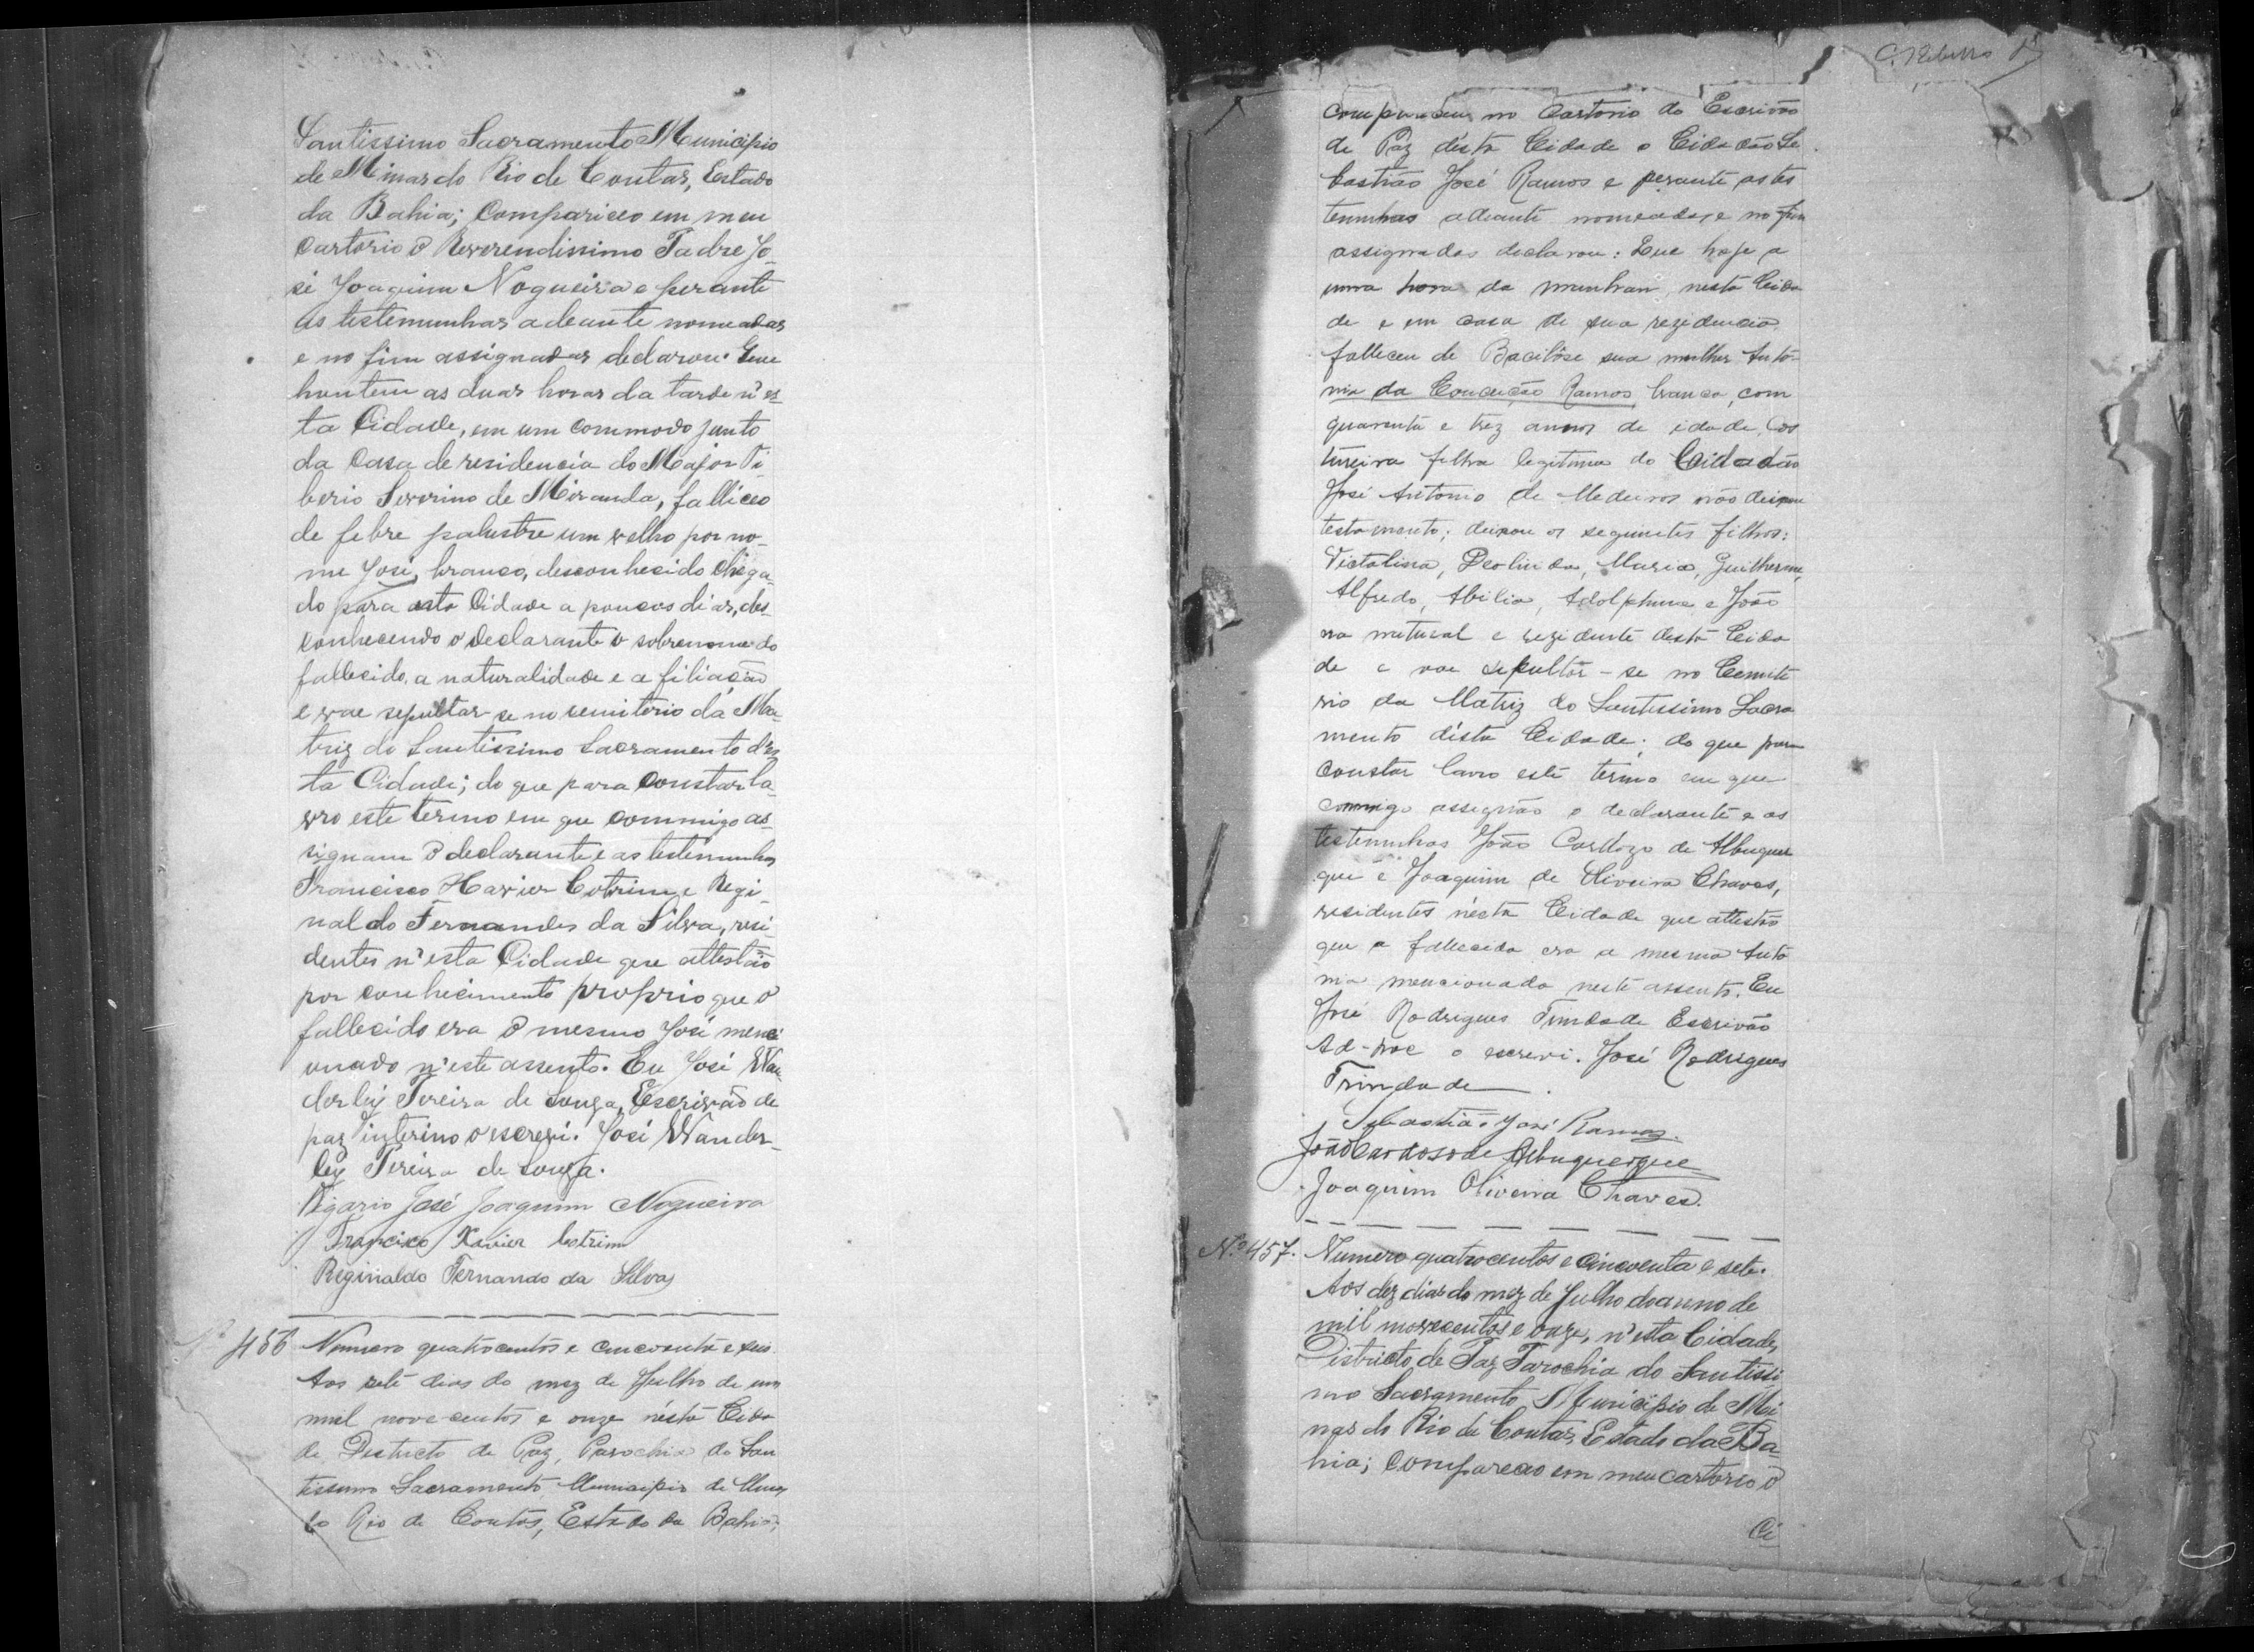 Santissimo Sacramento Municipio
de Minas do Rio de Contas, Estado
da Bahia; Compariceo em meu
Cartorio o Reverendissimo Padre Jo-
sé Joaquim Nogueira e perante
as testemunhas adeante nomeadas
e no fim assignadas declarou. Que
hontem as duas horas da tarde n'es-
ta Cidade, em um commodo junto
da Casa de residencia do Major Ti-
berio Severino de Miranda, falliceo
de febre palustre um velho por no-
me José, branco, desconhecido chega-
do para esta Cidade a poucos dias, des-
conhecendo o declarante o sobrenome do
fallecido, a naturalidade e a filiação
e vae sepultar-se no cemiterio da Ma-
triz do Santissimo Sacramento d'es-
ta Cidade; do que para constar la-
vro este termo em que commigo as-
signam o declarante e as testemunhas
Francisco Xavier Cotrim e Regi-
naldo Fernandes da Silva, resi-
dentes n'esta Cidade que attestão
por conhecimento proprio que o
fallecido era o mesmo José menci
onado n'este assento. Eu José Wan-
derley Pereira de Souza, Escrivão de
paz interino o escrevi. José Wander-
ley Pereira de Souza.
Vigario José Joaquim Nogueira
Francisco Xavier Cotrim
Reginaldo Fernando da Silva
Nº 456 Numero quatrocentos e cincoenta e seis.
Aos sete dias do mez de Julho de um
mil nove centos e onze nésta Cida
de, Destricto de Paz, Parochia do San
tissimo Sacramento Municipio de Minas
do Rio de Contas, Estado da Bahia;
C. Ribeiro
compareceu no Cartorio do Escrivão
de Paz désta Cidade o Cidadão Se
bastião José Ramos e perante as tes
temunhas adeante nomeadas e no fim
assignadas declarou: Que hoje a
uma hora da manhan, nesta Cida
de e em casa de sua rezidencia
falleceu de Bacilóse sua mulher Antô
nia da Conceição Ramos, branca, com
quarenta e trez annos de idade, Cos
tureira filha legitima do Cidadão
José Antonio de Medeiros não deixou
testamento; deixou os seguintes filhos:
Victalina, Deolinda, Maria, Guilherme,
Alfredo, Abilia, Adolphina e Joan
na natural e rezidente desta Cida
de e vae sepultar-se no Cemite
rio da Matriz do Santissimo Sacra
mento désta Cidade; do que para
constar lavro este termo em que
commigo assignão o declarante e as
testemunhas João Cardozo de Albuquer
que e Joaquim de Oliveira Chaves,
residentes nésta Cidade que attestão
que a fallecida era a mesma Antô
nia mencionada neste assento. Eu
José Rodrigues Trindade Escrivão
Ad-hoc o escrevi. José Rodrigues
Trindade.
Sebastião José Ramos.
João Cardoso de Albuquerque
Joaquim Oliveira Chaves.
Nº 457. Numero quatrocentos e cincoenta e sete.
Aos dez dias do mez de Julho do anno de
mil novecentos e onze, n'esta Cidade,
Districto de Paz Parochia do Santissi
mo Sacramento, Municipio de Mi
nas do Rio de Contas, Estado da Ba-
hia; Compareceo em meu cartorio o
Ci